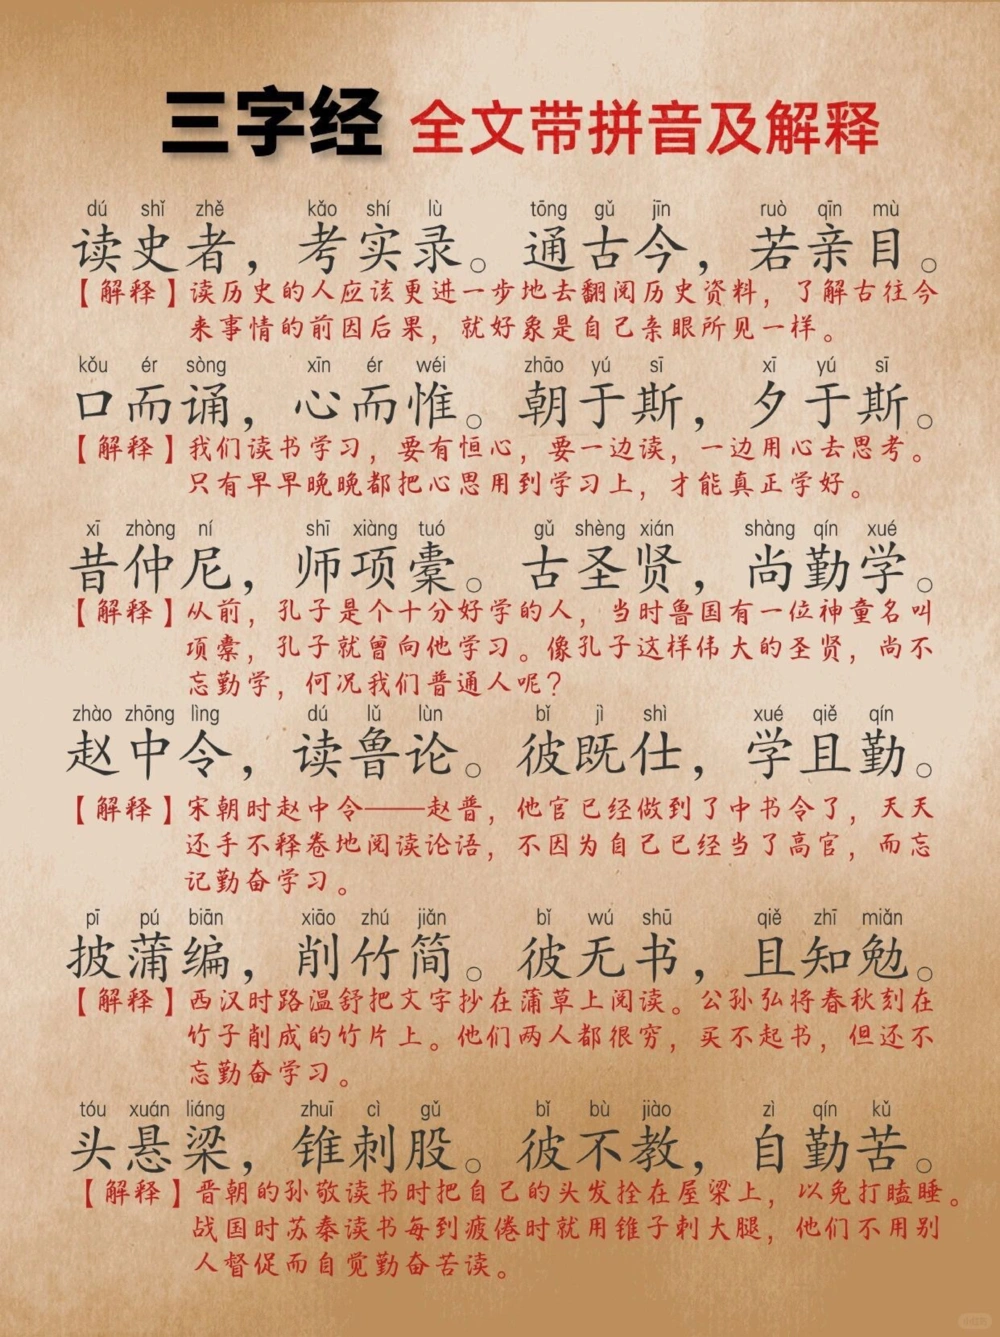 三字经 全文带拼音及解释
dú shǐ zhě kǎo shí lù tōng gǔ jīn ruò qīn mù
读史者，考实录。通古今，若亲目。
【解释】读历史的人应该更进一步地去翻阅历史资料，了解古往今
来事情的前因后果，就好象是自己亲眼所见一样。
kǒu ér sòng xīn ér wéi zhāo yú sī xī yú sī
口而诵，心而惟。朝于斯，夕于斯。
【解释】我们读书学习，要有恒心，要一边读，一边用心去思考。
只有早早晚晚都把心思用到学习上，才能真正学好。
xī zhòng ní shī xiàng tuó gǔ shèng xián shàng qín xué
昔仲尼，师项橐。古圣贤，尚勤学。
【解释】从前，孔子是个十分好学的人，当时鲁国有一位神童名叫
项橐，孔子就曾向他学习。像孔子这样伟大的圣贤，尚不
忘勤学，何况我们普通人呢？
zhào zhōng lìng dú lǔ lùn bǐ jì shì xué qiě qín
赵中令，读鲁论。彼既仕，学且勤。
【解释】宋朝时赵中令——赵普，他官已经做到了中书令了，天天
还手不释卷地阅读论语，不因为自己已经当了高官，而忘
记勤奋学习。
pī pú biān xiāo zhú jiǎn bǐ wú shū qiě zhī miǎn
披蒲编，削竹简。彼无书，且知勉。
【解释】西汉时路温舒把文字抄在蒲草上阅读。公孙弘将春秋刻在
竹子削成的竹片上。他们两人都很穷，买不起书，但还不
忘勤奋学习。
tóu xuán liáng zhuī cì gǔ bǐ bù jiào zì qín kǔ
头悬梁，锥刺股。彼不教，自勤苦。
【解释】晋朝的孙敬读书时把自己的头发拴在屋梁上，以免打瞌睡。
战国时苏秦读书每到疲倦时就用锥子刺大腿，他们不用别
人督促而自觉勤奋苦读。